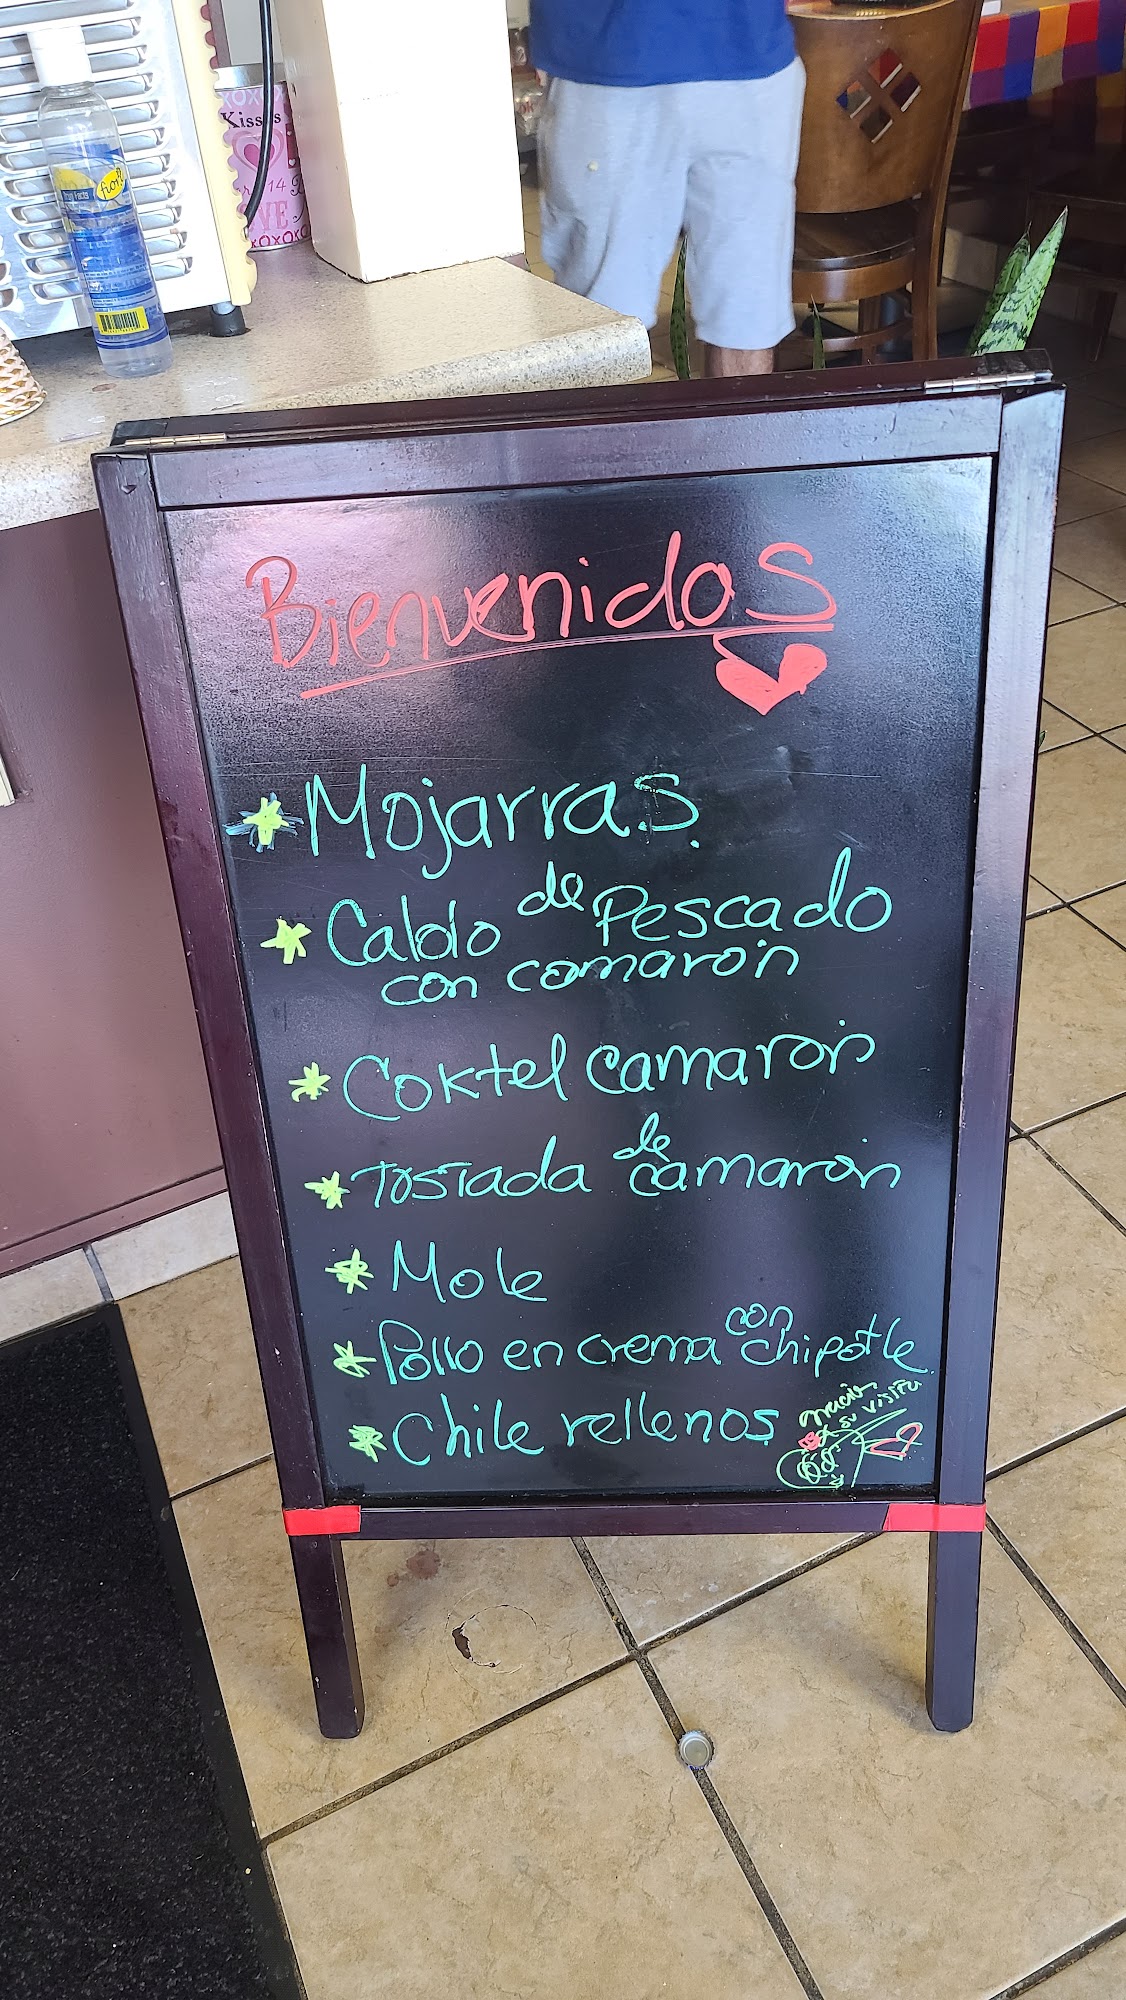 Kisses
14
XOXOXO
fior!
Drug Facts
Bienvenidos
Mojarras
Caldo de Pescado
con camarón
Coktel camarón
Tostada de camarón
Mole
Pollo en crema con chipotle
Chile rellenos
gracias
su visita